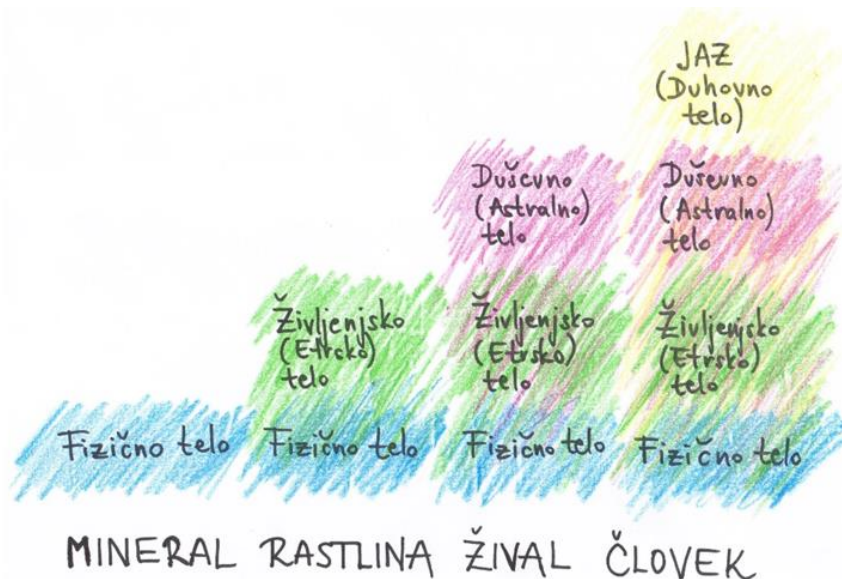 JAZ
(Duhovno
telo)
Duševno
(Astralno)
telo
Duševno
(Astralno)
telo
Življenjsko
(Etrsko)
telo
Življenjsko
(Etrsko)
telo
Življenjsko
(Etrsko)
telo
Fizično telo
Fizično telo
Fizično telo
Fizično telo
MINERAL RASTLINA ŽIVAL ČLOVEK